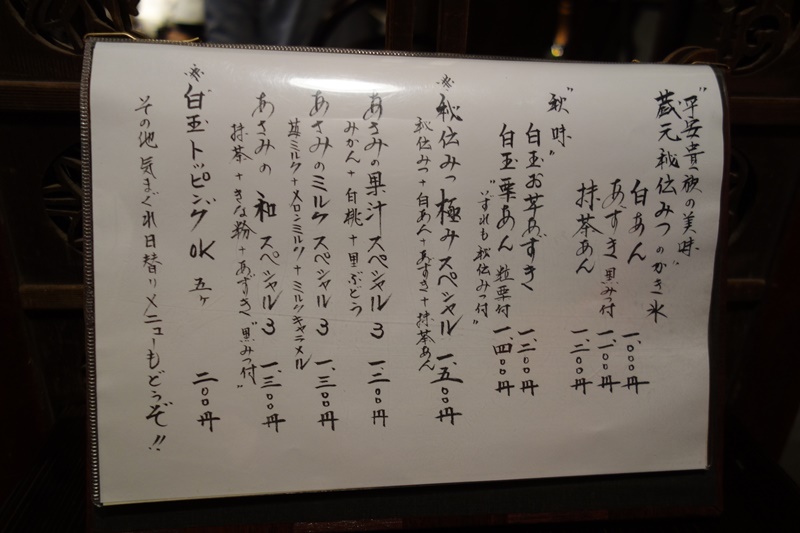 "平安貴族の美味"
蔵元秘伝みつのかき氷
白あん 一、〇〇〇円
あずき 黒みつ付 一、一〇〇円
抹茶あん 一、二〇〇円
"秋味"
白玉お芋あずき 一、三〇〇円
白玉栗あん 粒栗付 一、四〇〇円
"いずれも秘伝みつ付"
※秘伝みつ極みスペシャル 一、五〇〇円
秘伝みつ+白あん+あずき+抹茶あん
あさみの果汁スペシャル3 一、三〇〇円
みかん+白桃+黒ぶどう
あさみのミルクスペシャル3 一、三〇〇円
苺ミルク+メロンミルク+ミルクキャラメル
あさみの和スペシャル3 一、三〇〇円
抹茶+きな粉+あずき"黒みつ付"
※白玉トッピングOK 五ヶ 二〇〇円
その他 気まぐれ日替りメニューもどうぞ!!